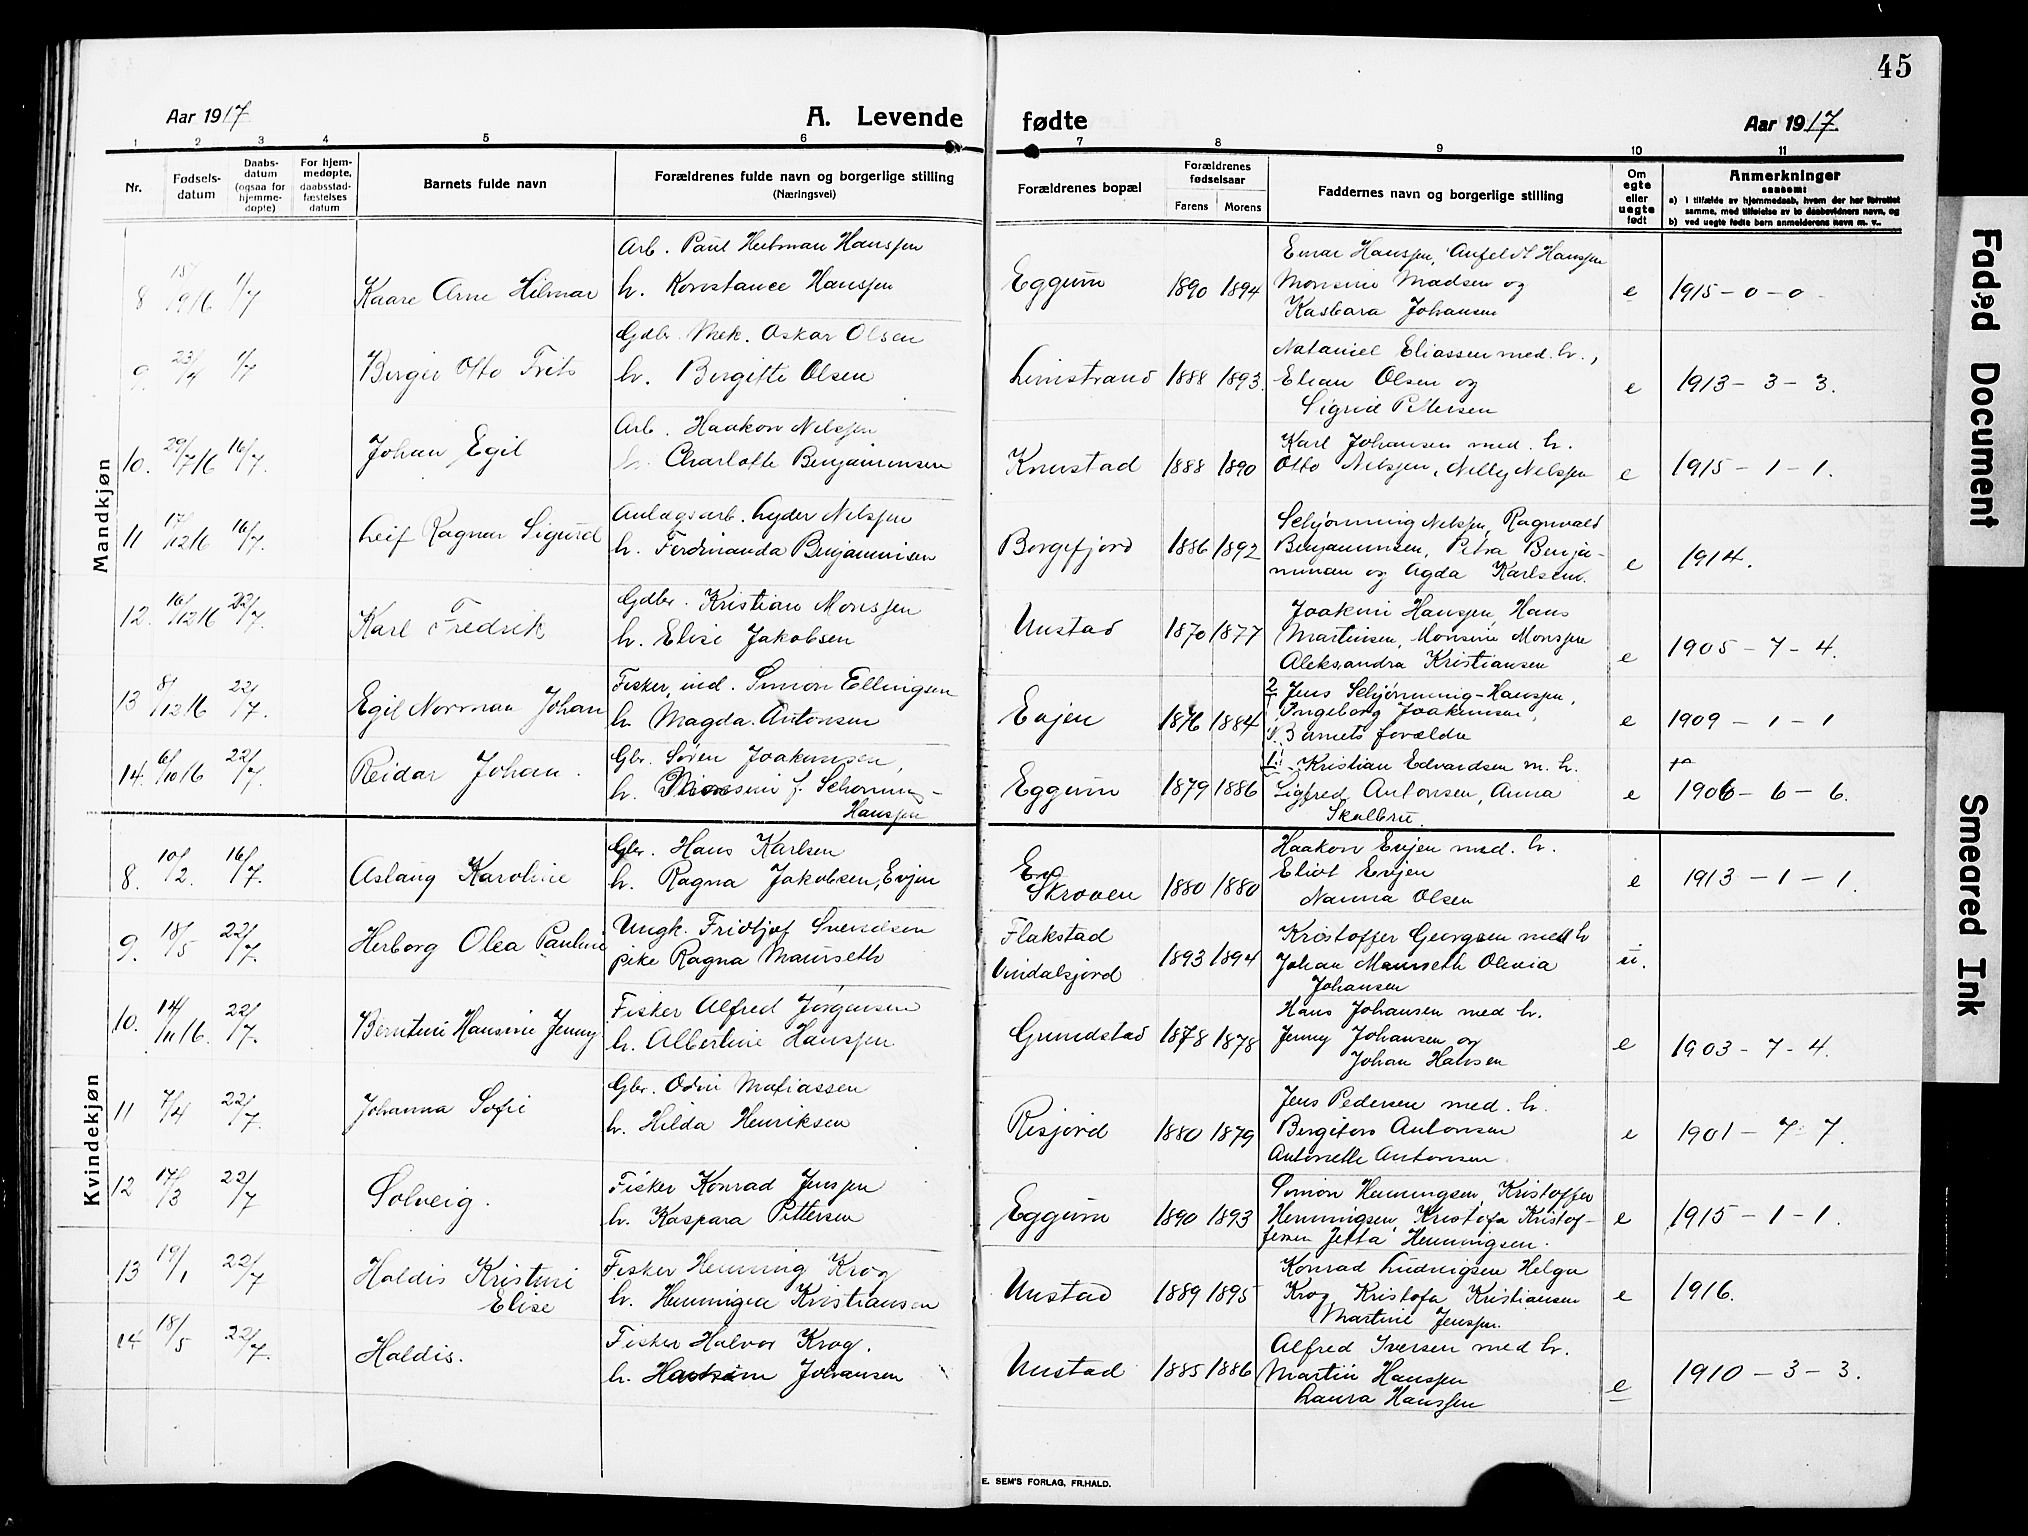 45
Aar 1917
A. Levende fødte
Aar 1917
1 2 3 4 5 6 7 8 9 10 11
Nr.
Fødsels-
datum
Daabs-
datum
(ogsaa for
hjemme-
døpte)
For hjem-
medøpte,
daabsstad-
fæstelses
datum
Barnets fulde navn
Forældrenes fulde navn og borgerlige stilling
(Næringsvei)
Forældrenes bopæl
Forældrenes
fødselsaar
Farens Morens
Faddernes navn og borgerlige stilling
Om
egte
eller
uegte
født
Anmerkninger
saasom:
a) I tilfælde av hjemmedaab, hvem der har forrettet
samme, med tilføielse av to daabsvidners navn, og
b) ved uegte fødte barn anmelderens navn m. v.
Mandkjøn
8 15/9 16 1/7 Kaare Arne Hilmar
Arb. Paul Hanssen
h. Konstance Hanssen
Eggum 1890 1894
Einar Hanssen, Hanssen
Monsine Madsen og
Kasbara Johansen
e 1915 - 0 - 0
9. 23/4 1/7 Birger Otto Frits
Gdbr. Mek. Oskar Olsen
h. Bergitte Olsen
Limstrand 1888 1893.
Nataniel Eliassen med h.,
Elian Olsen og
Sigrid Pettersen
e 1913 - 3 - 3.
10. 29/7 16 16/7. Johan Egil
Arb. Haakon Nilssen
h. Charlotte Benjaminsen
Knustad 1888 1890
Karl Johansen med h.
Otto Nilssen, Nelly Nilssen
e 1915 - 1 - 1.
11 17/12 16 16/7. Leif Ragnar Sigurd
Anlægsarb. Lyder Nilssen
h. Ferdinanda Benjaminsen
Borgefjord 1886 1892
Schjønning Nilssen, Ragnvald
Benjaminsen, Petra Benja-
minsen og Agda Karlsen.
e 1914.
12. 16/12 16 22/7. Karl Fredrik
Gdbr. Kristian Monssen
h. Elise Jakobsen
Unstad 1870 1877
Joakim Hanssen, Hans
Martinsen, Monsine Monssen
Aleksandra Kristiansen
e 1905 - 7 - 4.
13 8/12 16 22/7. Egil Norman Johan
Fisker, ind. Simon Ellingsen
h. Magda Antonsen
Evjen 1876 1884
2 Jens Schjønning-Hanssen,
Ingeborg Joakimsen,
Barnets forældre
e 1909 - 1 - 1
14. 6/10 16 22/7. Reidar Johan.
Gbr. Søren Joakimsen,
h. Monsine f. Schønning-
Hanssen
Eggum 1879 1886
1! Kristian Edvardsen m. h.
Sigfred Antonsen, Anna
Skalbru.
e 1906 - 6 - 6.
Kvindekjøn
8. 10/2. 16/7. Aslaug Karoline
Gbr. Hans Karlsen
h. Ragna Jakobsen, Evjen
Skroven 1880 1880
Haakon Evjen med. h.
Eliot Evjen
Nanna Olsen
e 1913 - 1 - 1.
9. 18/5 22/7. Herborg Olea Pauline
Ungk. Fridtjof Svendsen
pike Ragna Maurseth
Flakstad
Vindalsjord 1893 1894
Kristoffer Georgsen med h
Johan Maurseth Olivia
Johansen
u.
10. 14/11 16. 22/7. Berntine Hansine Jenny
Fisker Alfred Jørgensen
h. Albertine Hanssen
Grundstad 1878 1878
Hans Johansen med h.
Jenny Johansen og
Johan Hansen
e 1903 - 7 - 4.
11 7/4 22/7. Johanna Sofie
Gbr. Odin Matiassen
h. Hilda Henriksen
Risjord 1880 1879
Jens Pedersen med. h.
Bergitors Antonsen
Antonette Antonsen
e 1901 - 7 - 7.
12 17/3 22/7 Solveig.
Fisker Konrad Jenssen
h. Kaspara Pettersen
Eggum 1890 1893
Simon Henningsen, Kristoffer
Henningsen, Kristofa Kristof-
fersen Jetta Henningsen.
e 1915 - 1 - 1.
13 19/1 22/7 Haldis Kristine
Elise
Fisker Henning Krog
h. Henningea Kristiansen
Unstad 1889 1895
Konrad Ludvigsen Helga
Krog Kristofa Kristiansen
Martine Jenssen.
e 1916.
14 18/5 22/7. Haldis.
Fisker Halvor Krog.
h. Johansen
Unstad 1885 1886
Alfred Iversen med h.
Martin Hanssen
Laura Hanssen
e 1910 - 3 - 3.
E. SEM'S FORLAG, FR.HALD.
Faded Document
Smeared Ink